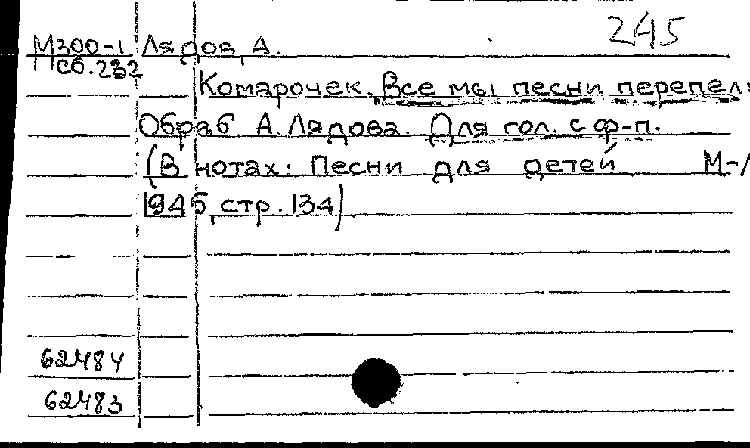 245
М300-1 Лядов, А.
сб.232
Комарочек. Все мы песни перепел
Обраб А. Лядова. Для гол. с ф-п.
(В нотах: Песни для детей М-Л
1945, стр. 134)
62484
62483